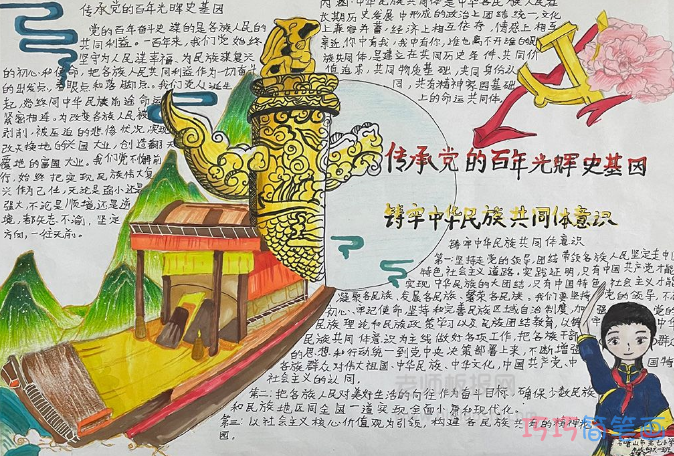 传承党的百年光辉史基因
党的百年奋斗史谋的是各族人民的
共同利益。一百年来,我们党始终
坚守为人民谋幸福、为民族谋复兴
的初心和使命,把各族人民共同利益作为一切奋斗
的出发点、着眼点和落脚点。我们党从诞生
起,党
紧密相连,为改变各族人民被
剥削、被压迫的悲惨状况,
改天换地的
覆地的
行,始终把实现民族伟大复
兴作为己任,无论是弱小还是
强大,不论是顺境还是逆
境,都矢志不渝,坚定
方向,一往无前。
内涵:中华民族共同体是中华各民族人民在
长期历史发展中形成的政治上团结统一,文化
上兼容并蓄,经济上相互依存,情感上相互
亲近,你中有我,我中有你,谁也离不开谁的
族共同体,是建立在共同历史条件、共同价
值追求、共同物质基础、共同身份认
同、共有精神家园基础
上的命运共同体。
传承党的百年光辉史基因
铸牢中华民族共同体意识
铸牢中华民族共同体意识
第一:坚持党的领导,团结带领各族人民坚定走中国
特色社会主义道路。实践证明,只有中国共产党才能
实现中华民族的大团结,只有中国特色社会主义才能
凝聚各民族、发展各民族、繁荣各民族。我们要坚持党的领导,不忘
初心、牢记使命,坚持和完善民族区域自治制度,加强党的
民族理论和民族政策学习以及民族团结教育,以铸牢
族共同体意识为主线做好各项工作,把各族干部
的思想和行动统一到党中央决策部署上来,不断增强
各族群众对伟大祖国、中华民族、中华文化、中国共产党、中国特色
社会主义的认同。
第二:把各族人民对美好生活的向往作为奋斗目标,确保少数民族
和民族地区同全国一道实现全面小康和现代化。
第三:以社会主义核心价值观为引领,构建各民族共有的精神家
园。
老师板报网
巧巧简笔画